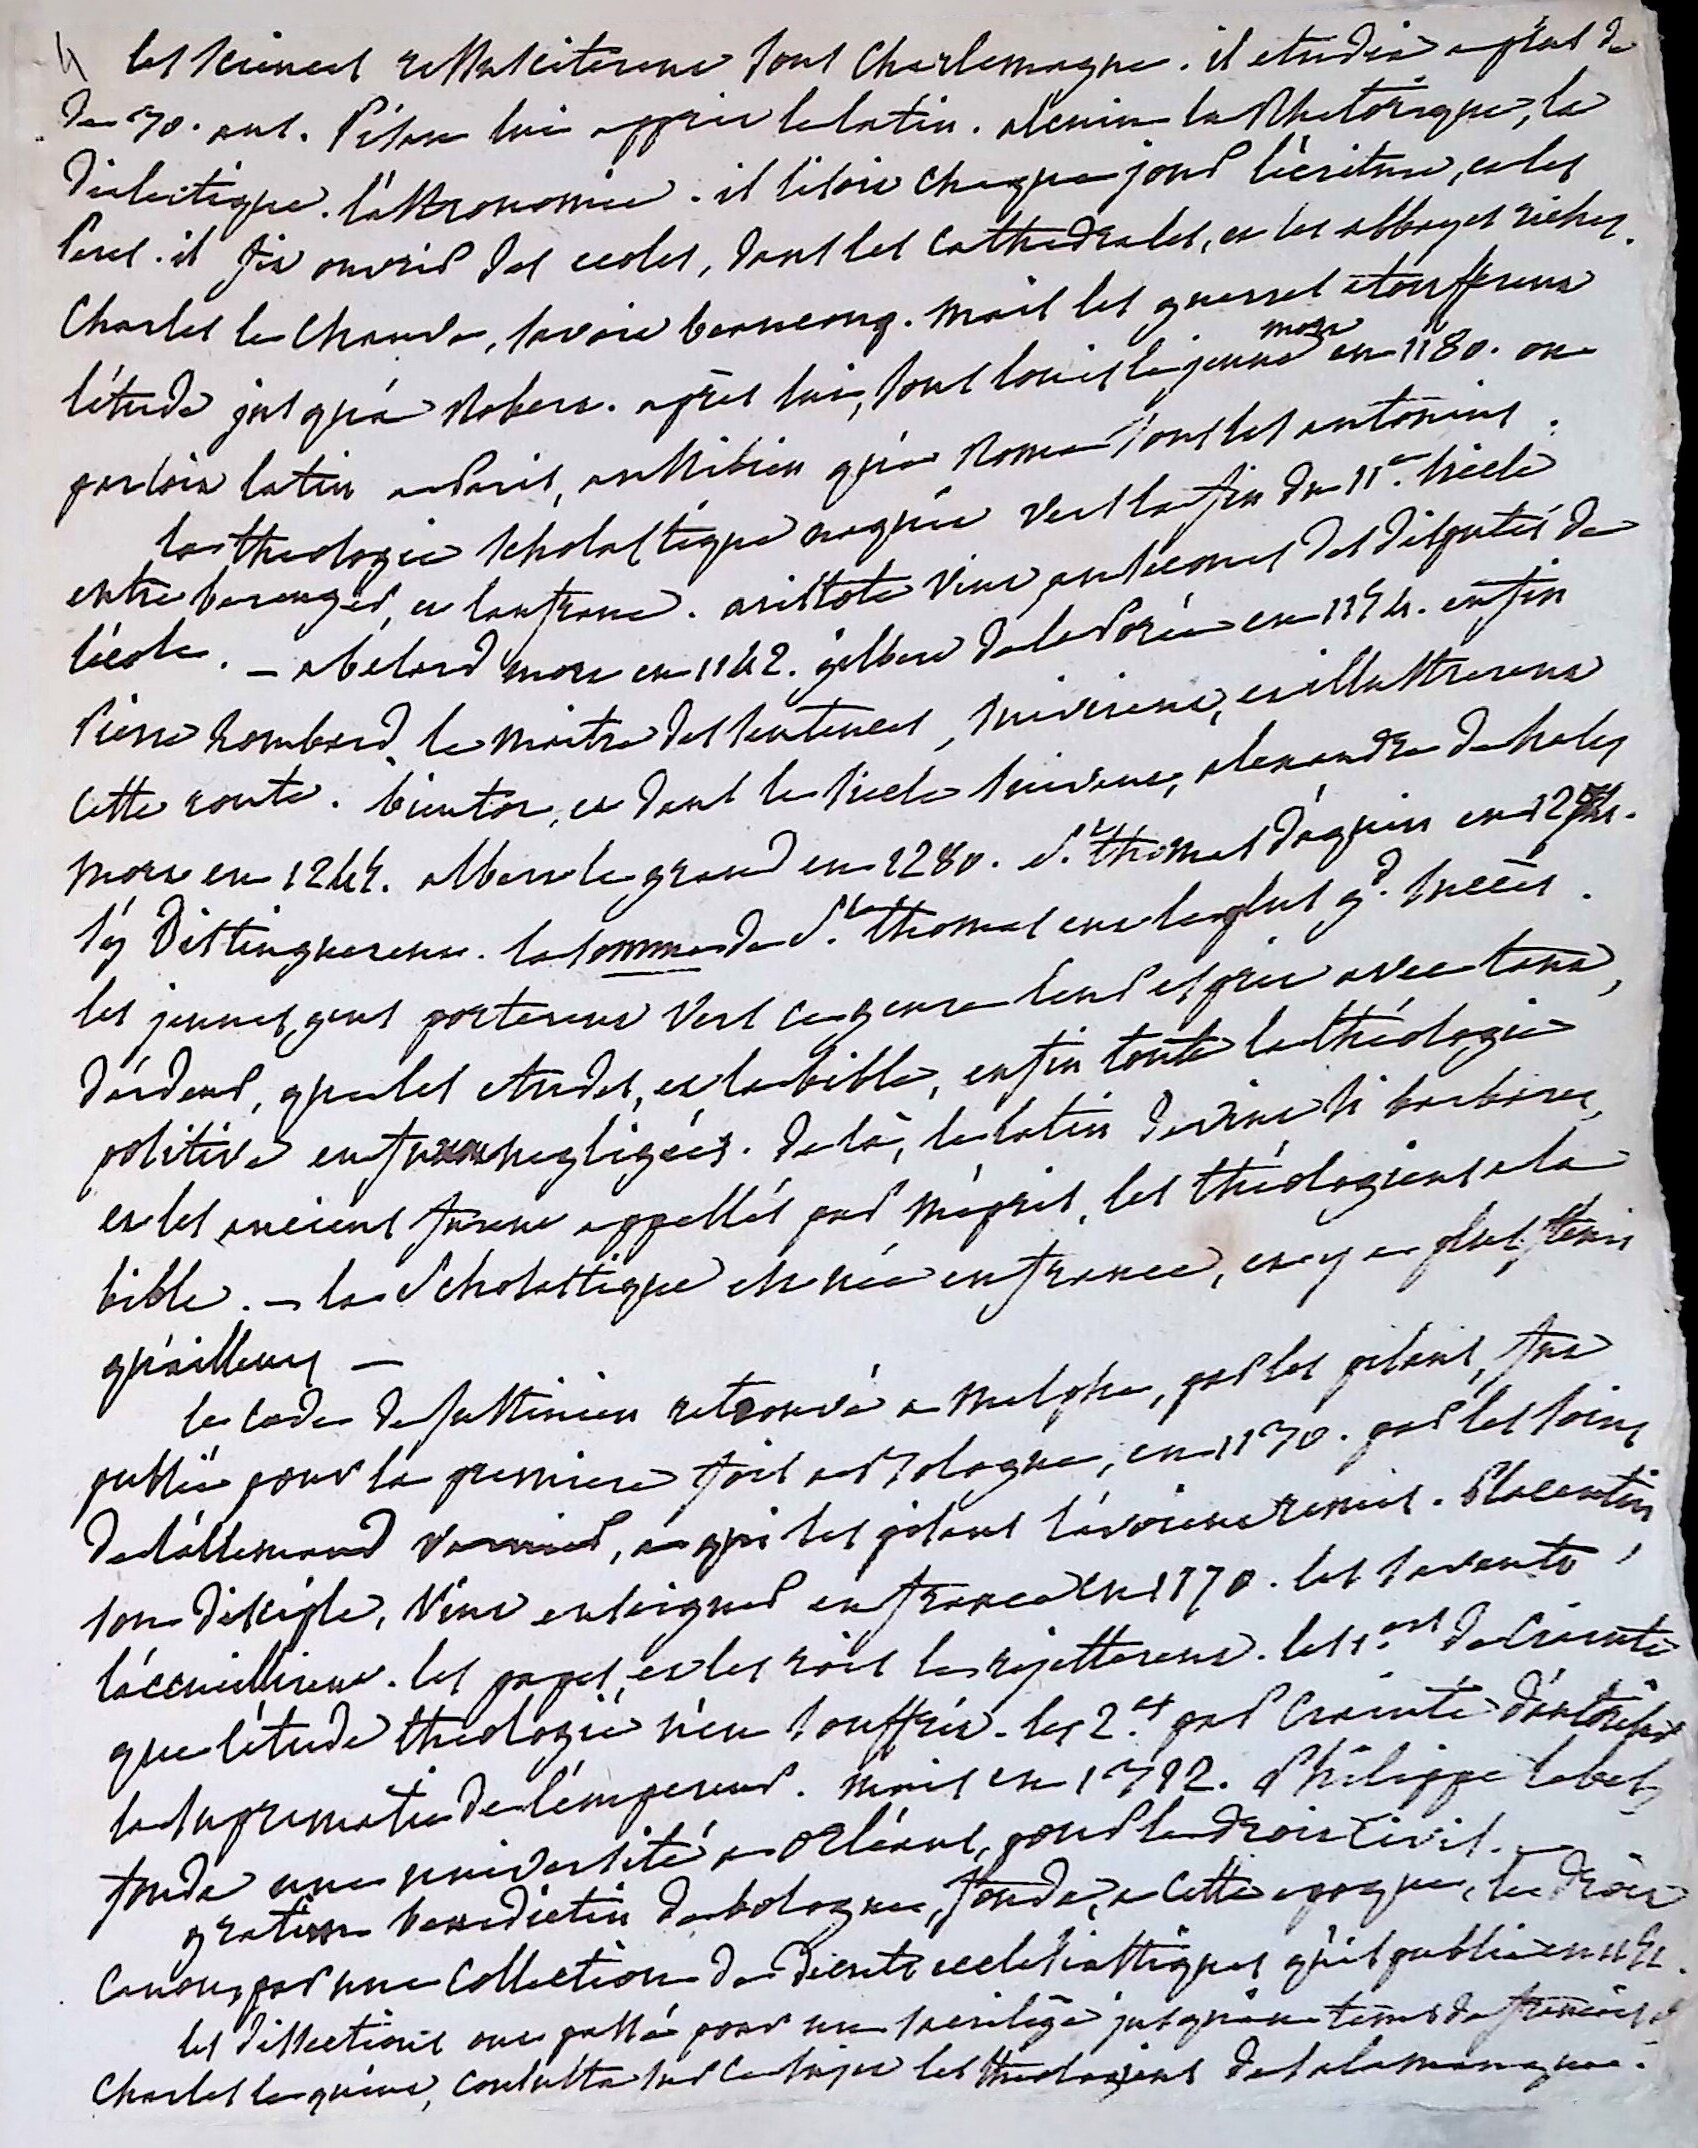 4 les sciences ressusciterent sous Charlemagne. il etudia a plus de
de 30. ans. Pisan lui apprit le latin. alcuin la Rhetorique, la
dialectique. l'astronomie. il lisoit chaque jour l'écriture, et les
Peres. il fit ouvrir des ecoles, dans les cathedrales, et les abbayes riches.
Charles le Chauve, savoit beaucoup. mais les guerres etoufferent
l'étude jusqu'a Robert. après lui, sous louis le jeune mort en 1180. on
parloit latin a Paris, aussibien qu'a Rome sous les antonins.
la theologie scholastique naquit vers la fin du 11e. siecle
entre berenger, et lanfranc. aristote vint au secours des disputes de
l'école. – abélard mort en 1142. gilbert de la Porée en 1154. enfin
Pierre Lombard, le maitre des sentences, suivirent, et illustrerent
cette route. bientot, et dans le siecle suivant, alexandre de hales
mort en 1245. albert le grand en 1280. St. thomas d'aquin en
s'y distinguerent. la somme de St. thomas eut le plus gd. succès.
les jeunes gens porterent vers ce genre leur esprit avec tant,
d'ardeur, que les etudes, et la bible, enfin toute la théologie
positive en furent negligées. de là, le latin devint si barbare,
et les anciens furent appellés par mépris, les théologiens a la
bible. – la Scholastique est née en france, et y a plus fleuri
qu'ailleurs –
le code de Justinien retrouvé a Melphe, par les pisans, fut
publié pour la premiere fois a Bologne, en 1130. par les soins
de l'allemand varnier, a qui les pisans l'avoient remis. Placentin,
son disciple, vint enseigner en france en 1170. les savants
l'accueillirent. les papes, et les rois le rejetterent. les 1.ers de crainte
que l'étude theologie n'en souffrit. les 2.es par crainte d'autoriser
la suprematie de l'empereur. mais en 1312. Philippe le bel,
fonde une université a Orléans, pour le droit civil.
gratien benedictin de bologne, fonda, a cette epoque, le droit
canon, par une collection de decrets ecclesiastiques qu'il publia en 1151.
les dissections ont passé pour un sacrilège jusqu'au tems de francois 1er.
Charles le quint, consulta sur ce sujet les theologiens de salamanque.